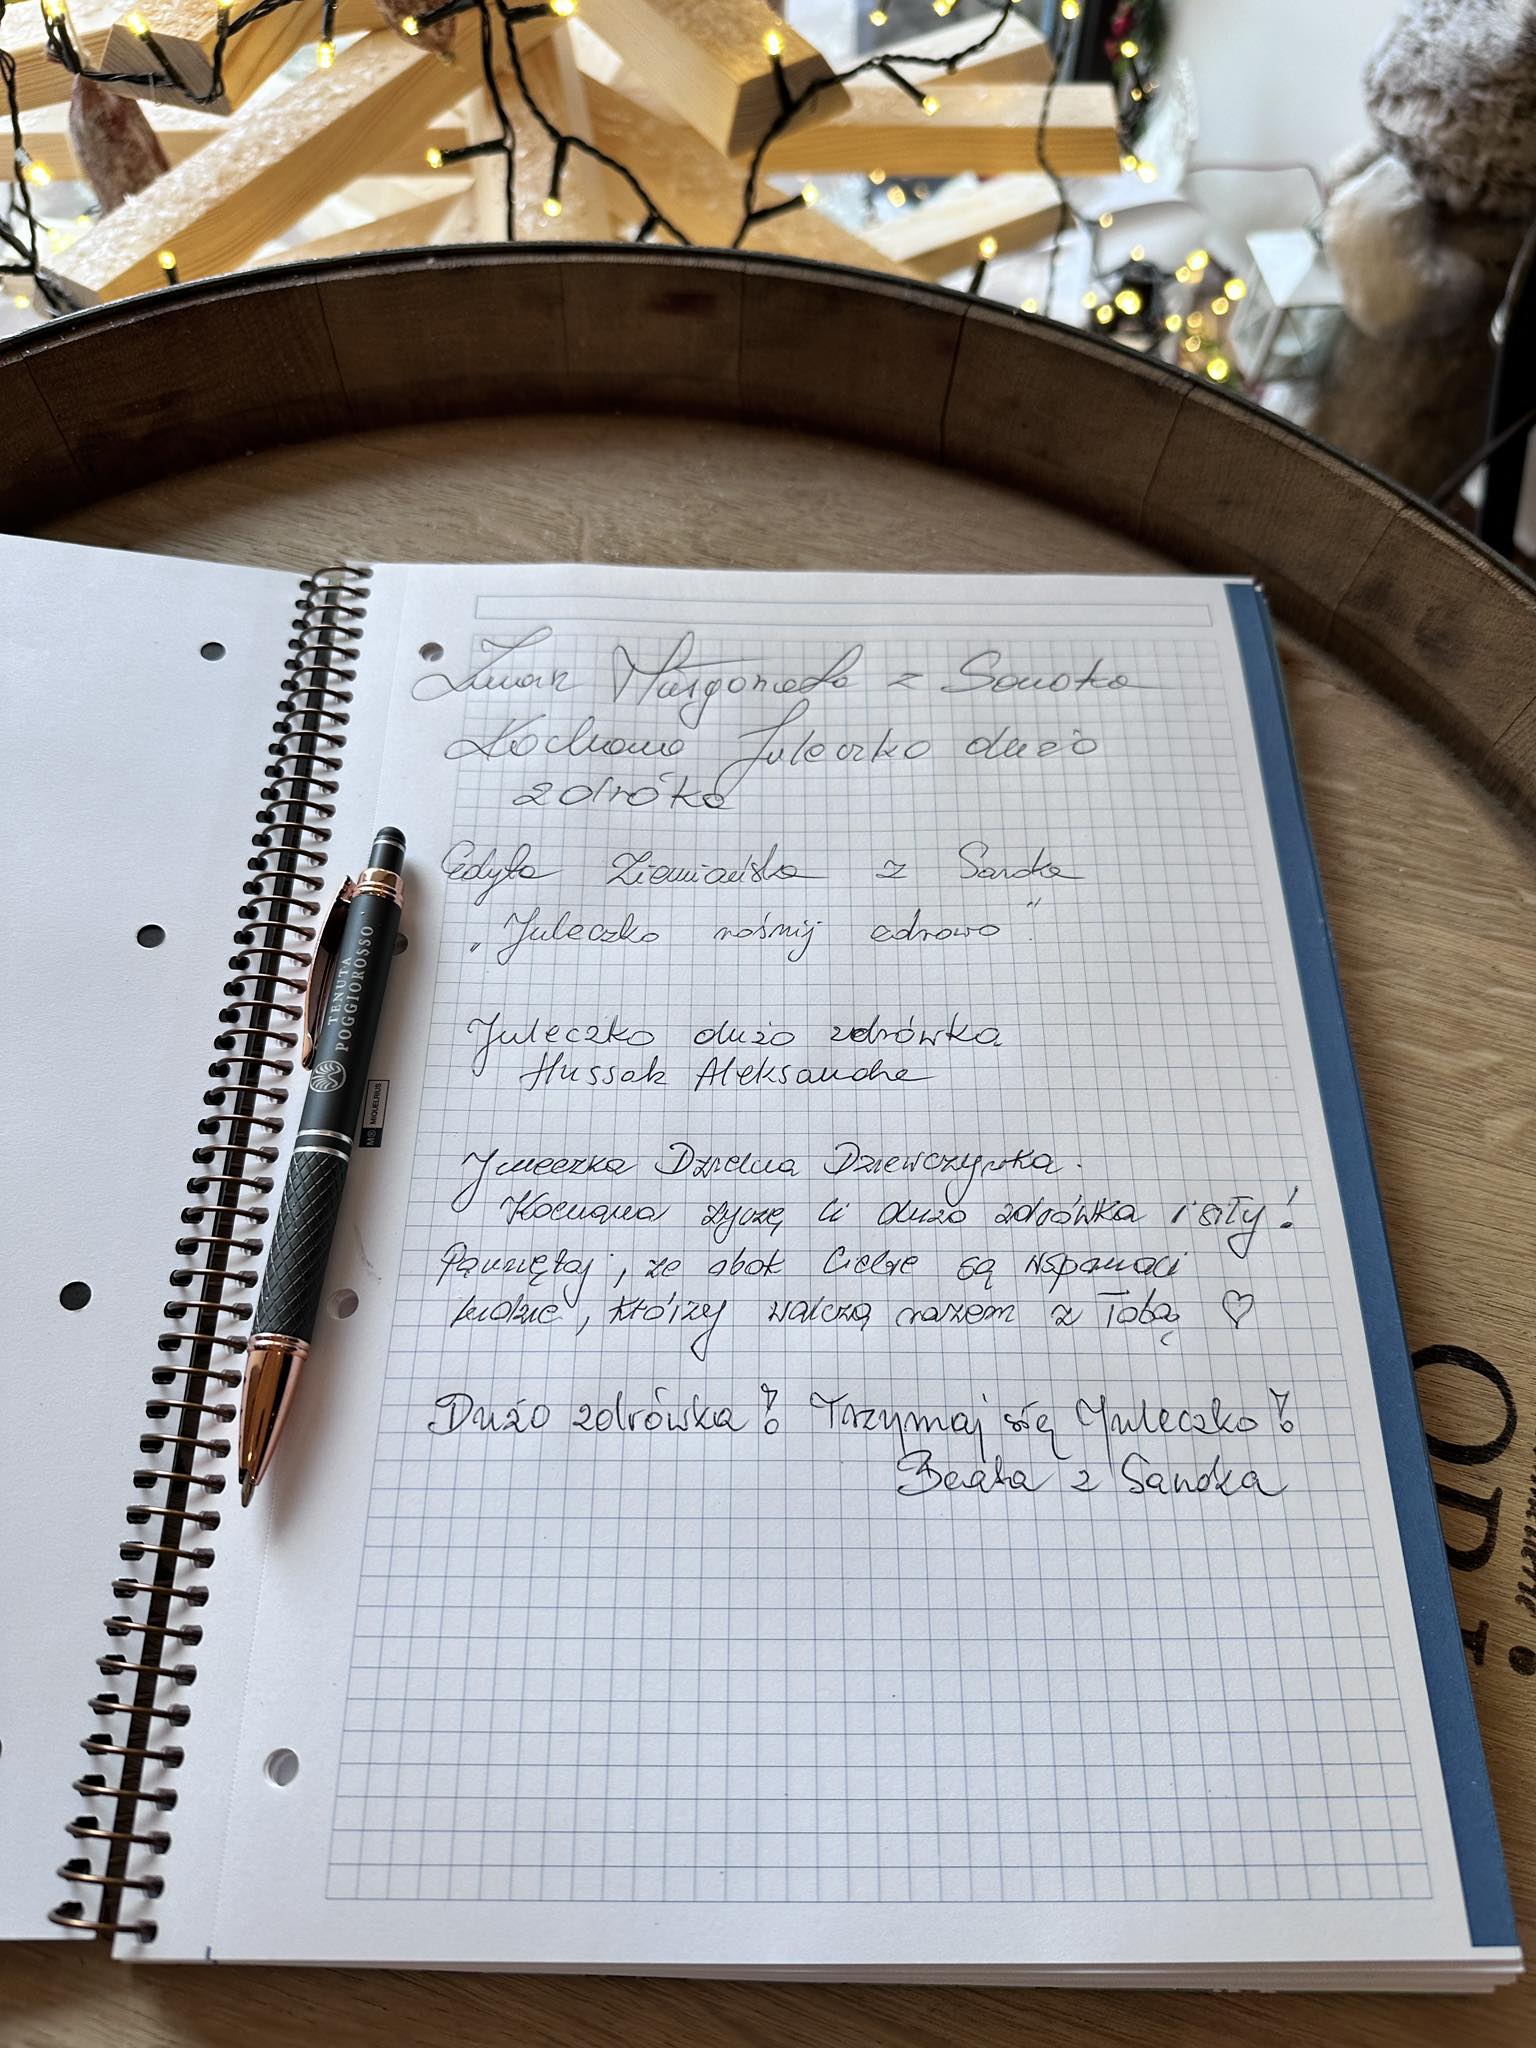 Żurak Małgorzata z Sanoka
Kochana Juleczko dużo
zdróka
Edyta Ziemiańska z Sanoka
„Juleczko rośnij zdrowo"
Juleczko dużo zdrówka
Hussak Aleksandra
Juleczka Dzielna Dziewczynka.
Kochana życzę Ci dużo zdrówka i siły!
Pamiętaj, że obok Ciebie są wspaniali
ludzie, którzy walczą razem z Tobą ♡
Dużo zdrówka! Trzymaj się Juleczko!
Beata z Sanoka
TENUTA
POGGIOROSSO
MIQUELRIUS
OPI